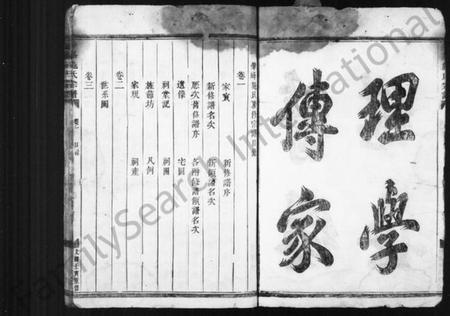 理學
傳家
卷一
家寶
新修譜序
新修譜名次
新領譜名次
歷次舊修譜序
各附修譜領譜名次
遺像
宅圖
祠堂記
祠圖
旌節坊
凡例
家規
祠產
卷二
世系圖
卷三
FamilySearch International